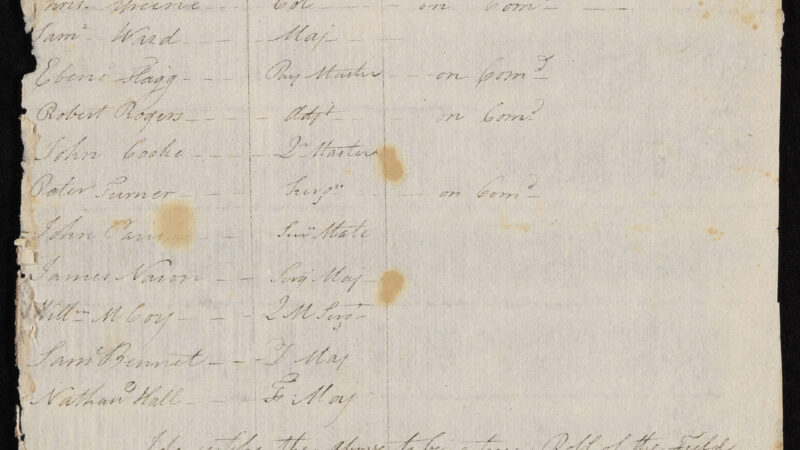 Chrisr Greene - - Col - - - on Comd - - -
Samll Ward - - - Maj - - -
Ebenr Flagg - - - Pay Master - - on Comd -
Robert Rogers - - - Adjt - on Comd
John Cooke - - - Qr Master
Peter Turner - - - Surgn - - - on Comd -
John - - Sur Mate
James Nason - - Serg Maj -
Willm McCoy - - - Q M Sergt
Saml Bennet - - - D Maj
Nathanl Hall - - - F: Maj
I do certifie the above to be a true Roll of the Field